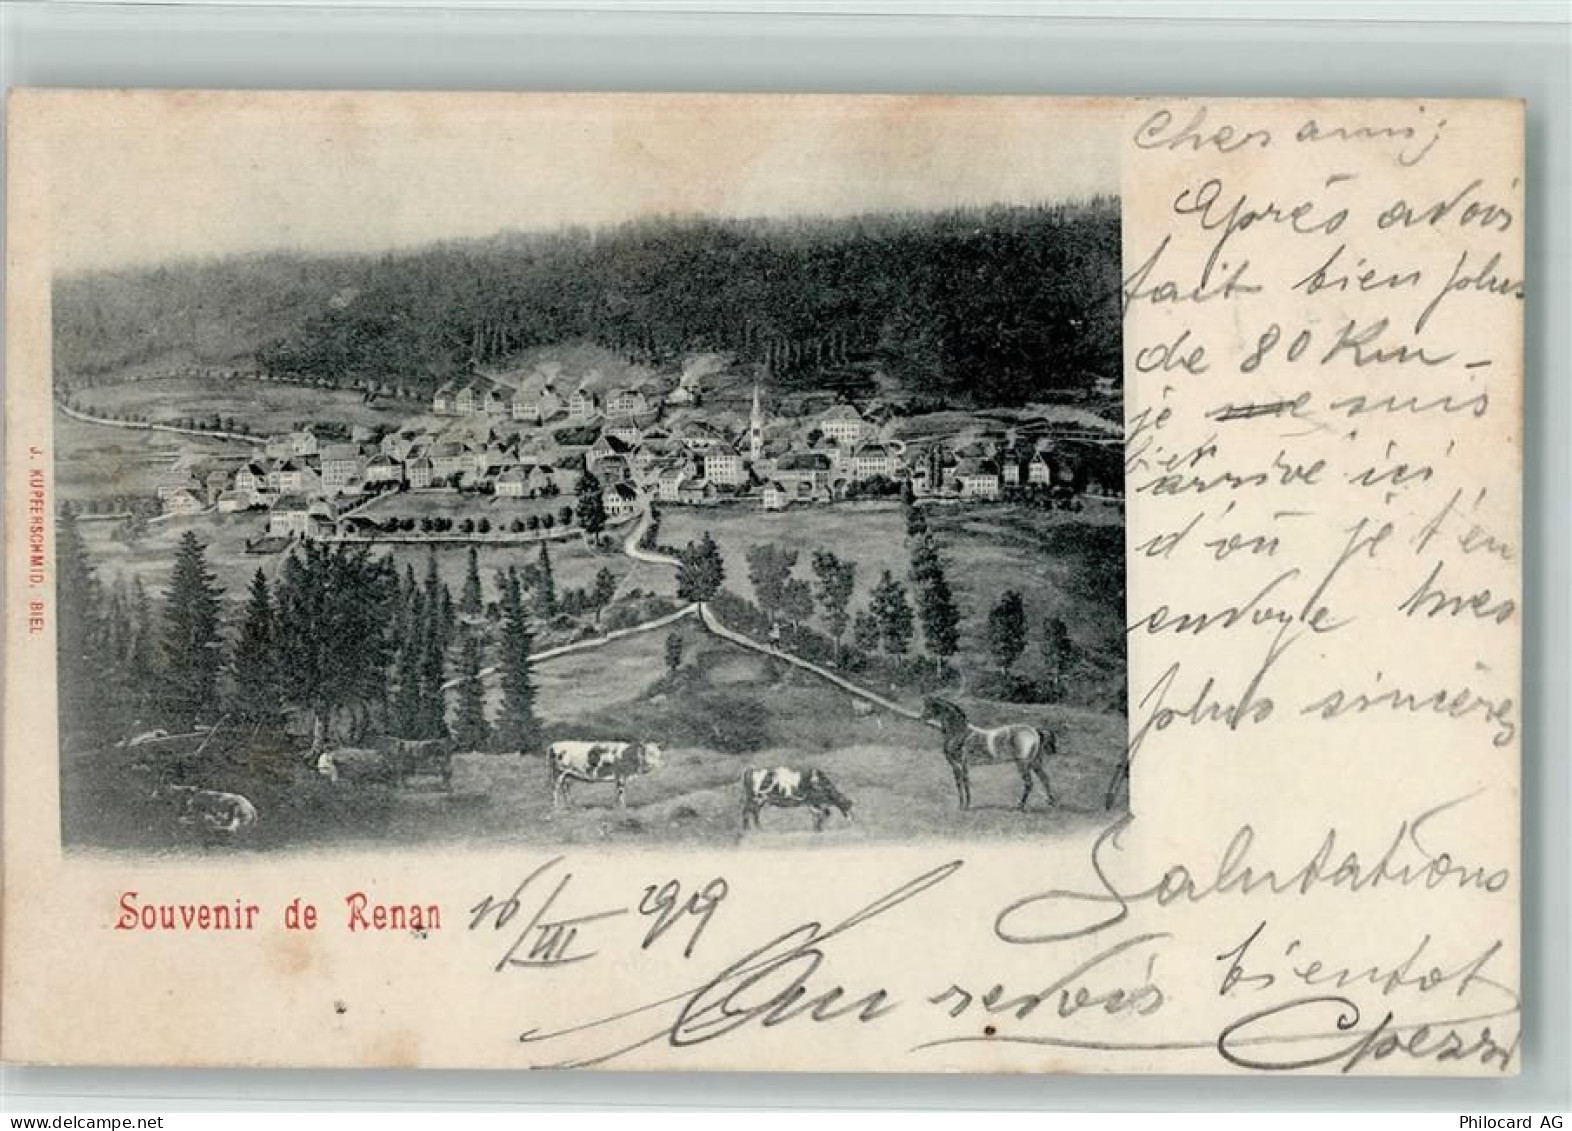 Cher ami;
Après avoir
fait bien plus
de 80 Km -
je suis
bien
arrivé ici
d'où je t'en
envoye mes
plus sincères
Salutations
Au revoir bientot
Souvenir de Renan
16/III 99
J. KUPFERSCHMID, BIEL
Philocard AG